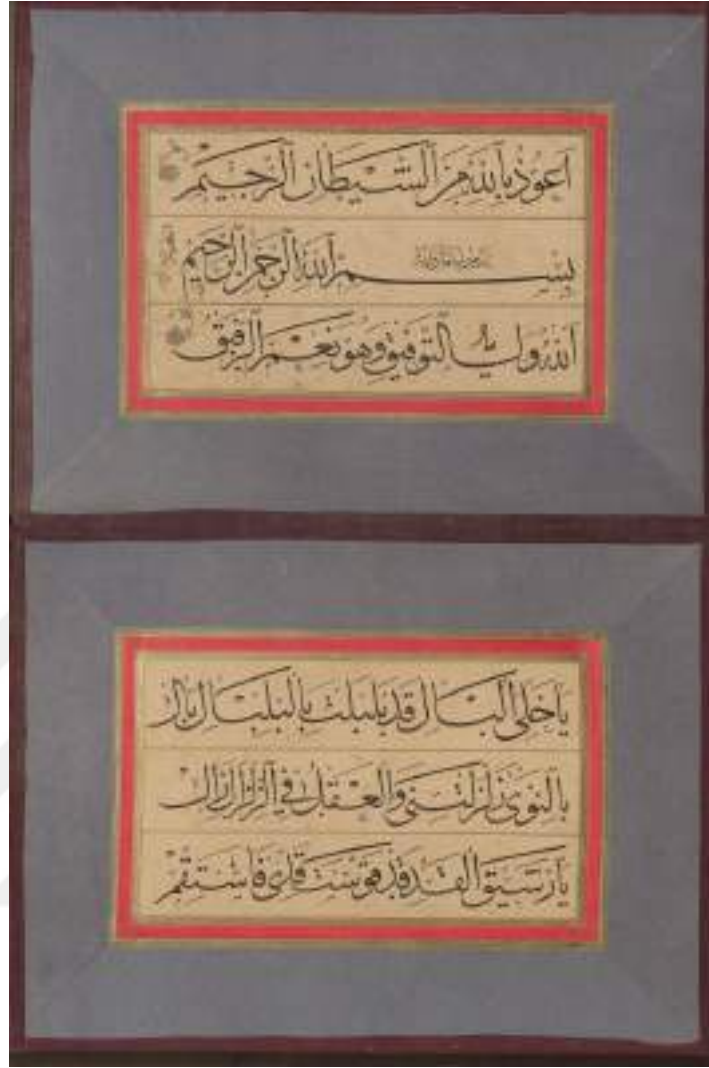 اعوذ بالله من الشيطان الرجيم
بسم الله الرحمن الرحيم
الله ولي التوفيق وهو نعم الرفيق
يا خلي البال قد بلبلت بالبلبال بال
بالنوى زلزلتني والعقل في الزلزال زال
يا رشيق القد قد قوست قدي فاستقم